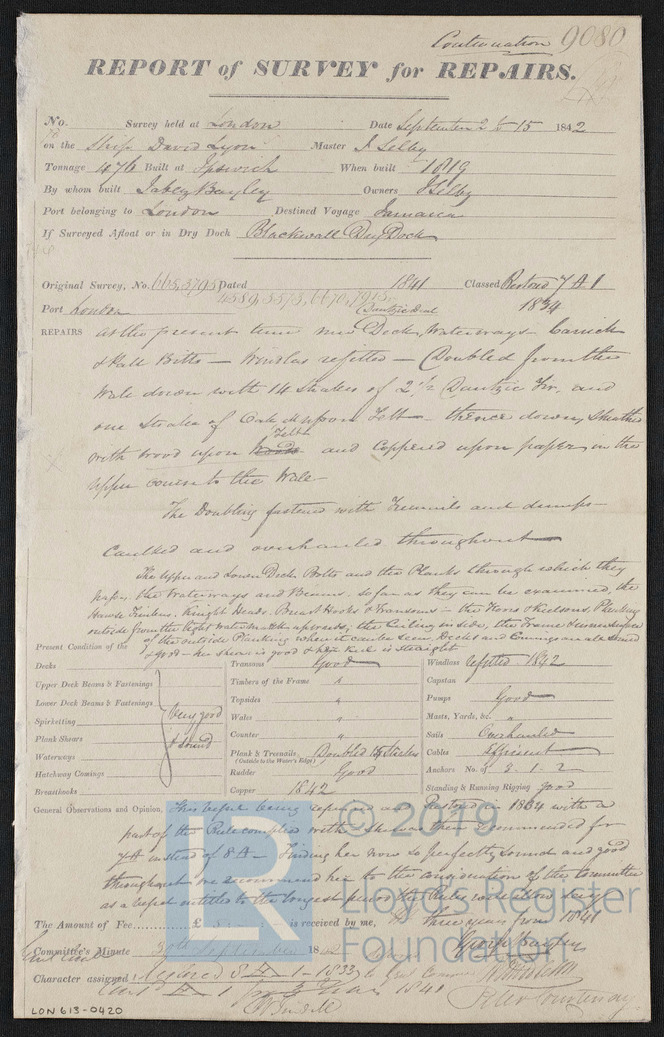 Continuation 9080
REPORT of SURVEY for REPAIRS.
No. Survey held at London Date September 2 to 15 1842
on the Ship David Lyon Master J Selby
Tonnage 476 Built at Ipswich When built 1819
By whom built Jabez Bayley Owners J Selby
Port belonging to London Destined Voyage Jamaica
If Surveyed Afloat or in Dry Dock Blackwall Dry Dock
Original Survey, No. 665, 3795 Dated 1841 Classed Restored 7 A 1
4589, 5573, 6670, 7915
Port London (Dantzic Deal 1834
REPAIRS at the present time new Deck, Waterways Carrick
& Pall Bitts — Windlass refitted — Doubled from the
Wale down with 14 strakes of 2 1/2 Dantzic Fir, and
one strake of Oak upon Felt — thence down, Sheathed
with wood upon Felt and Coppered upon paper, in the
upper course to the Wale —
The Doubling fastened with Treenails and dumps —
Caulked and overhauled throughout —
The Upper and Lower Deck Bolts and the Planks through which they
pass, the Waterways and Beams, so far as they can be examined, the
Hawse Timbers, Knight Heads, Breast Hooks & Transoms — the Keelsons, Planking
outside from the light Water mark upwards, the Ceiling inside, the Frame &
the outside Planking where it can be seen, Decks and Comings are all sound
Present Condition of the & good — her shear is good & her Keel is straight
Decks
Upper Deck Beams & Fastenings
Lower Deck Beams & Fastenings
Spirketting
Plank Shears
Waterways
Hatchway Comings
Breasthooks
Very good
& sound
Transoms Good
Timbers of the Frame "
Topsides "
Wales "
Counter "
Plank & Treenails, Doubled 14 Strakes
(Outside to the Water's Edge)
Rudder Good
Copper 1842
Windlass refitted 1842
Capstan
Pumps Good
Masts, Yards, &c. "
Sails Overhauled
Cables Efficient
Anchors No. of 3-1-2
Standing & Running Rigging good
General Observations and Opinion, This vessel being repaired and Restored in 1834 with a
part of the Rule complied with she was then recommended for
7 A instead of 8 A — Finding her now so perfectly sound and good
throughout we recommend her to the consideration of the Committee
as a vessel entitled to the longest period the Rules
three years from 1841
The Amount of Fee £ is received by me,
Committee's Minute 30th September 1842
Character assigned Restored 8 A 1 - 1833
A 1 for 3 Years 1841
Peter Courtenay
LON 613-0420
© 2019
LR
Lloyd's Register
Foundation